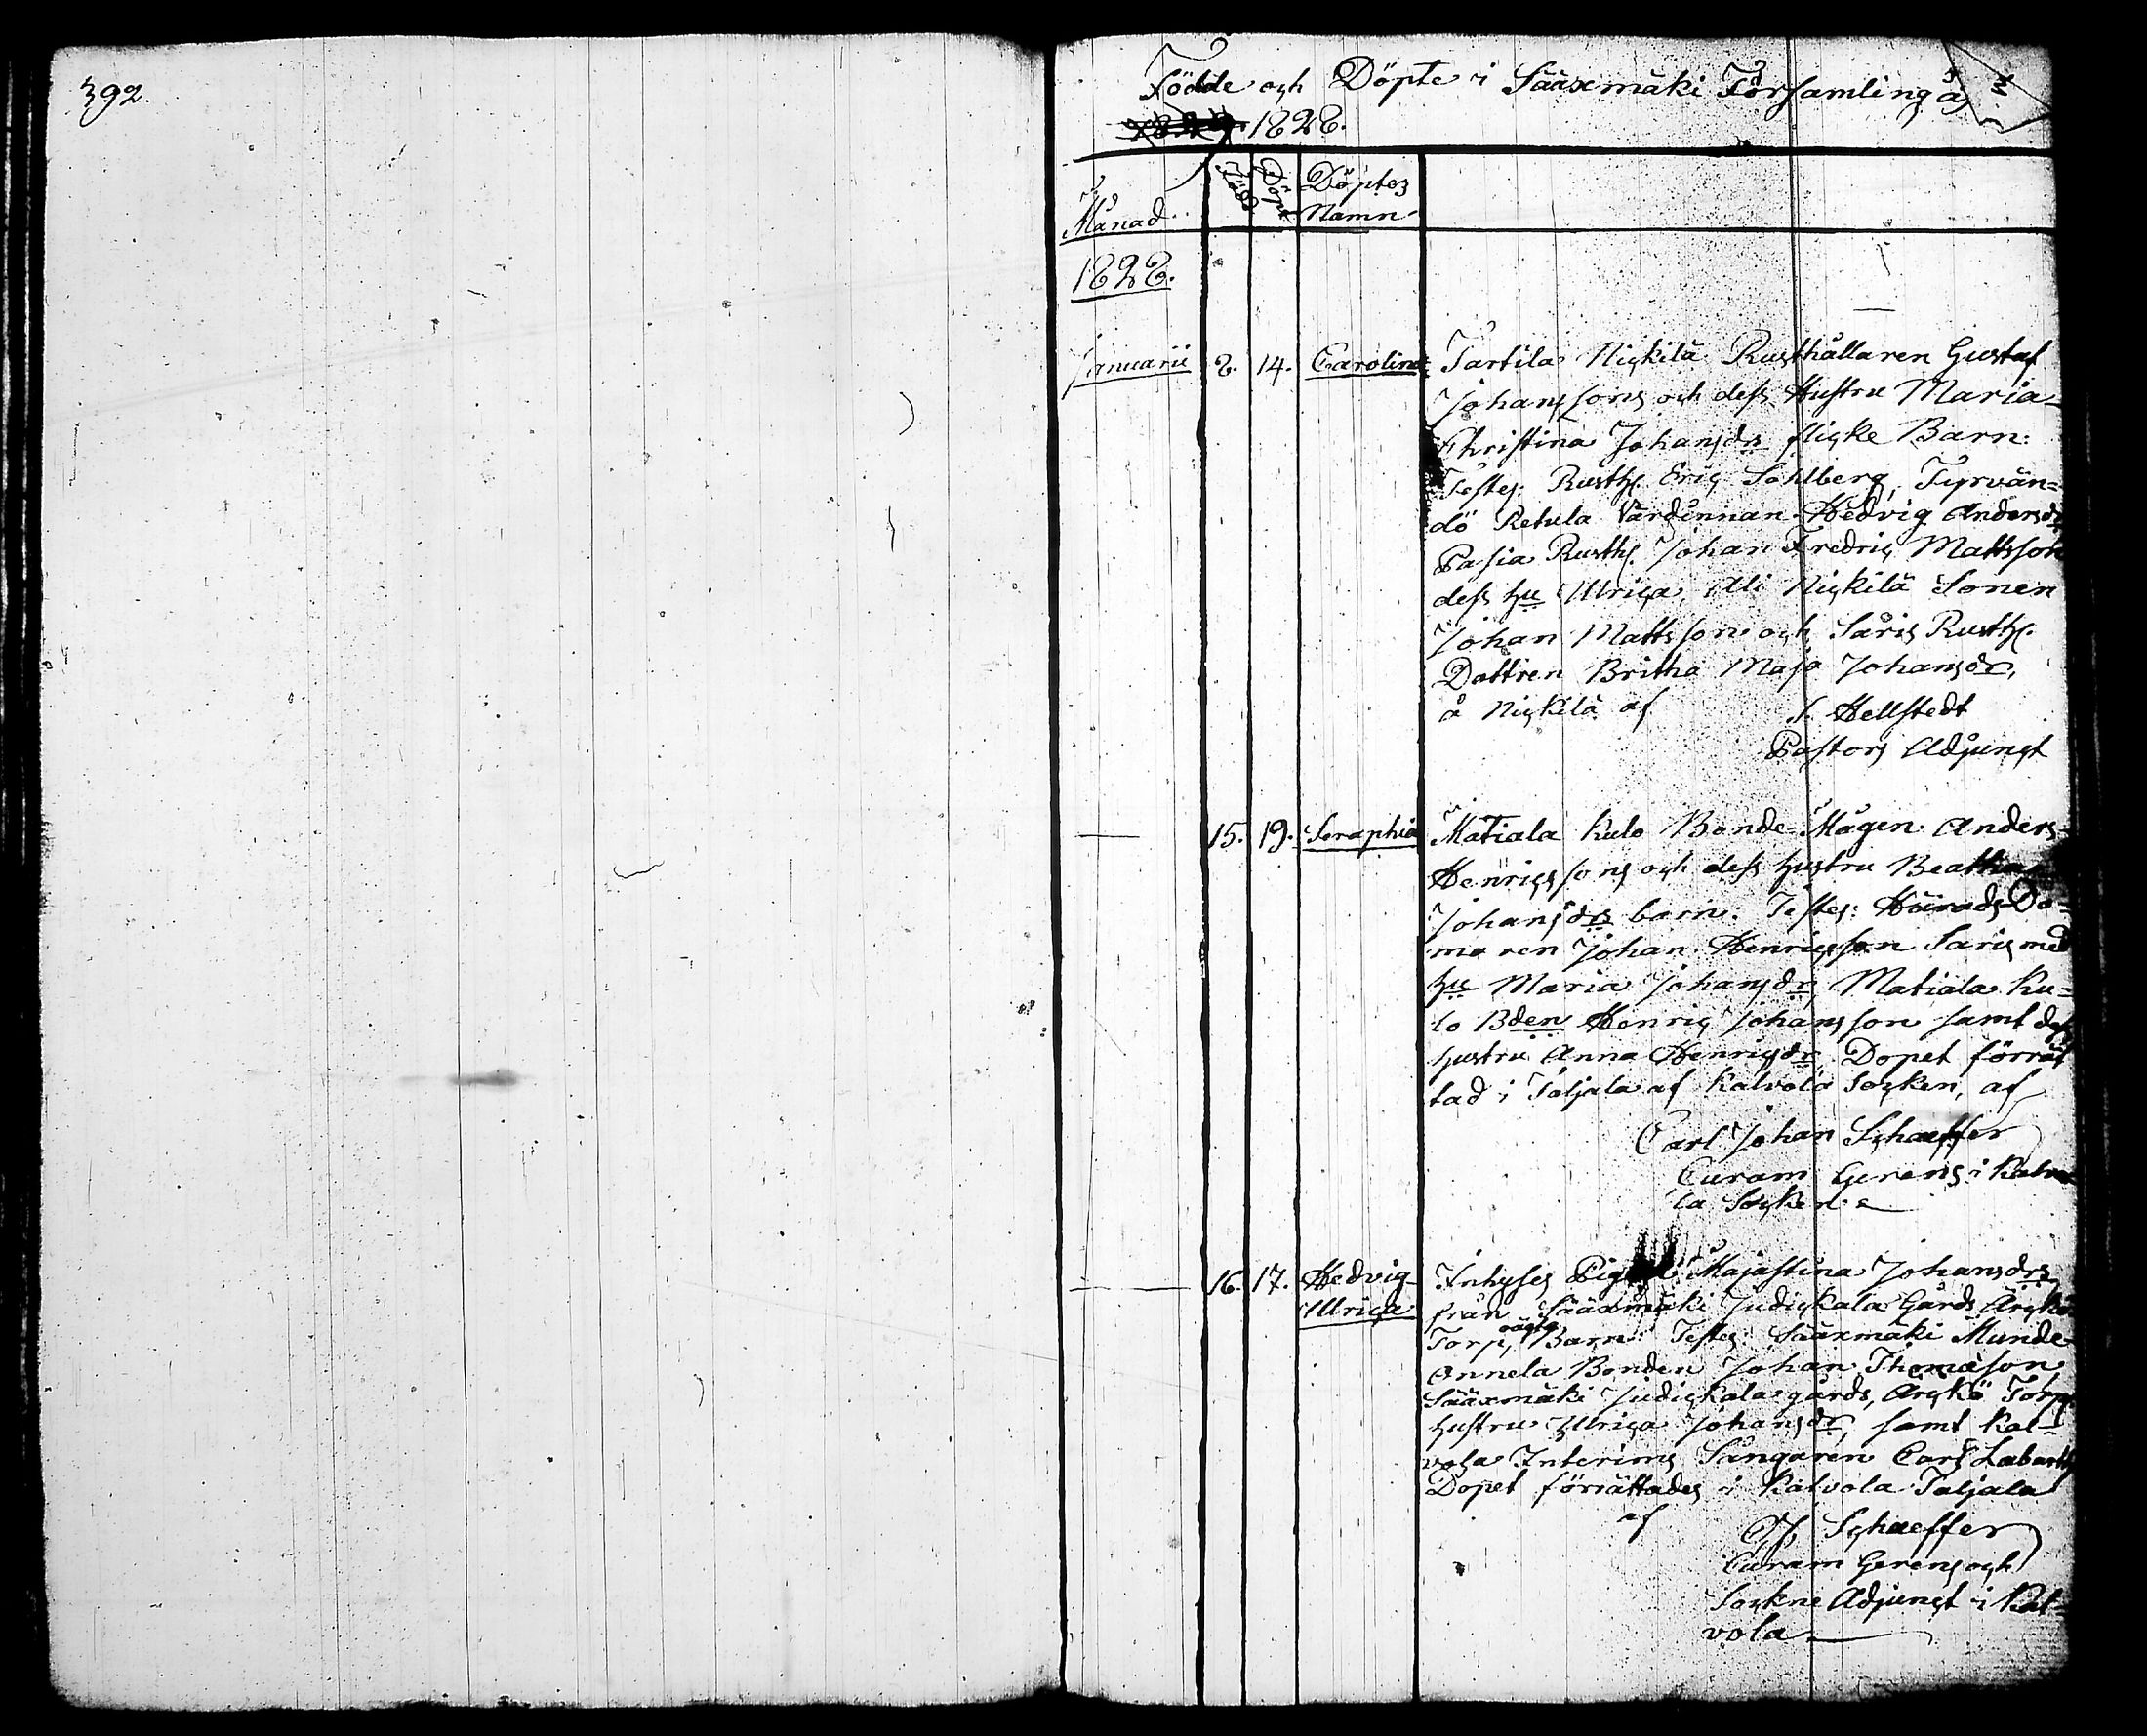 392.
Födde och Döpte i Sääxmäki Församling år
1828.
Månad Född Döpt Döptes Namn
1828.
Januarii 8. 14. Carolina Tartila Nickilä Rusthållaren Gustaf
Johanssons och dess Hustru Maria
Christina Johansdrs flicke Barn:
Testes: Rusth. Eric Sohlberg, Tyrvän=
dö Retula Värdinnan Hedvig Andersdr
Pasia Rusth. Johan Fredric Mattsson
dess hu Ulrica, Uli Nickilä Sonen
Johan Mattsson och Saris Rusth.
Dottren Britha Maja Johansdr,
å Nickilä af J. Hellstedt
Pastors Adjunct
15. 19. Seraphia Matiala Kulo Bonde Mågen Anders
Henricssons och dess hustru Beatha
Johansdrs barn: Testes: Härads Do=
maren Johan Henricsson Saris med
hu Maria Johansdr, Matiala Ku=
lo Bden Henric Johansson samt dess
hustru Anna Henricsdr. Dopet förrät
tad i Taljala af Kalvola Socken, af
Carl Johan Schaeffer
Curam Gerens i Kalvo
la Socken
16. 17. Hedvig Inhyses Majastina Johansdrs
Ulrica från Sääxmäki Judickala Gårds Arckö
Torp, oägta Barn: Testes: Sääxmäki Munde
Annela Bonden Johan Thomasson
Sääxmäki Judickala gårds, Arckö Torp
hustru Ulrica Johansdr, samt Kal=
vola Interims Sångaren Carl
Dopet förrättades i Kalvola Taljala
af CJ Schaeffer
Curam Gerens och
Sockne Adjunct i Kal=
vola